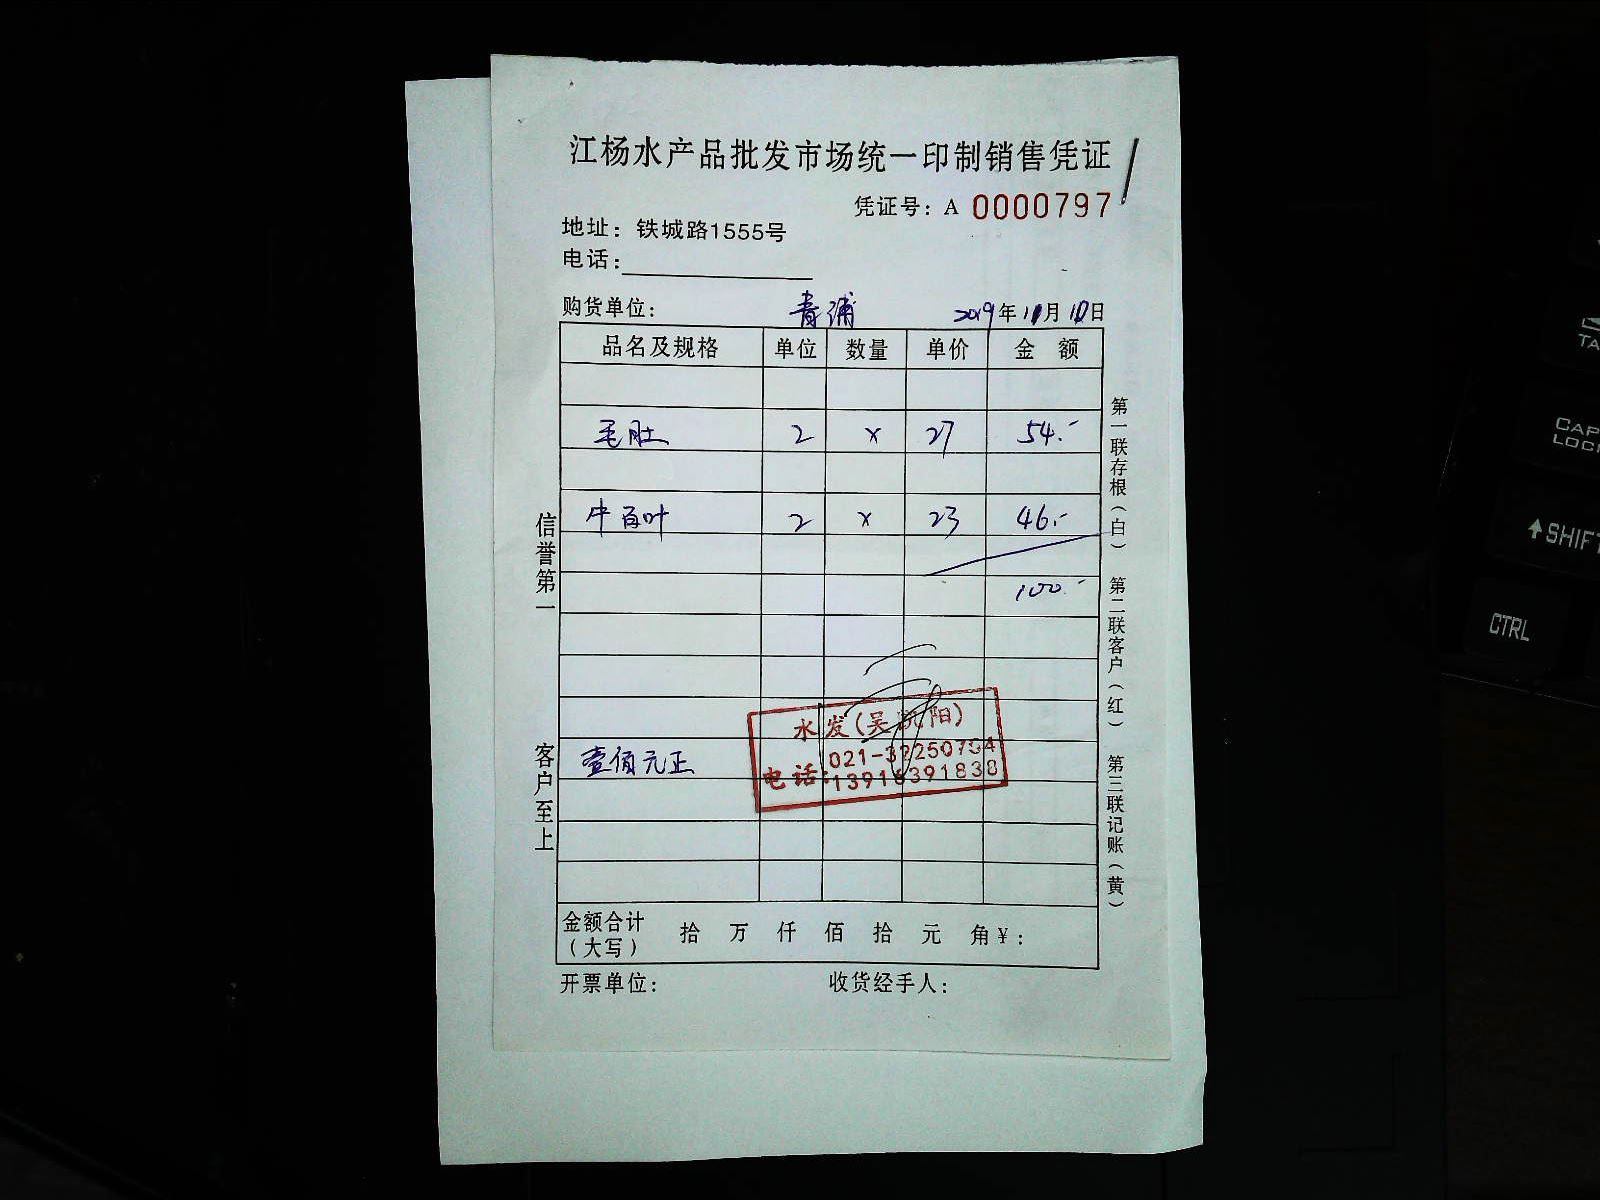 江杨水产品批发市场统一印制销售凭证
凭证号：A 0000797
地址：铁城路1555号
电话：
购货单位： 青浦 2019年 月 日
品名及规格 单位 数量 单价 金 额
毛肚 2 x 27 54.-
牛百叶 2 x 23 46.-
100.-
水发(吴 阳)
021-32250754
电话:13916391838
壹佰元正
金额合计（大写） 拾 万 仟 佰 拾 元 角￥：
开票单位： 收货经手人：
信誉第一
客户至上
第一联存根（白）
第二联客户（红）
第三联记账（黄）
TA
CAP
LOC
SHIFT
CTRL